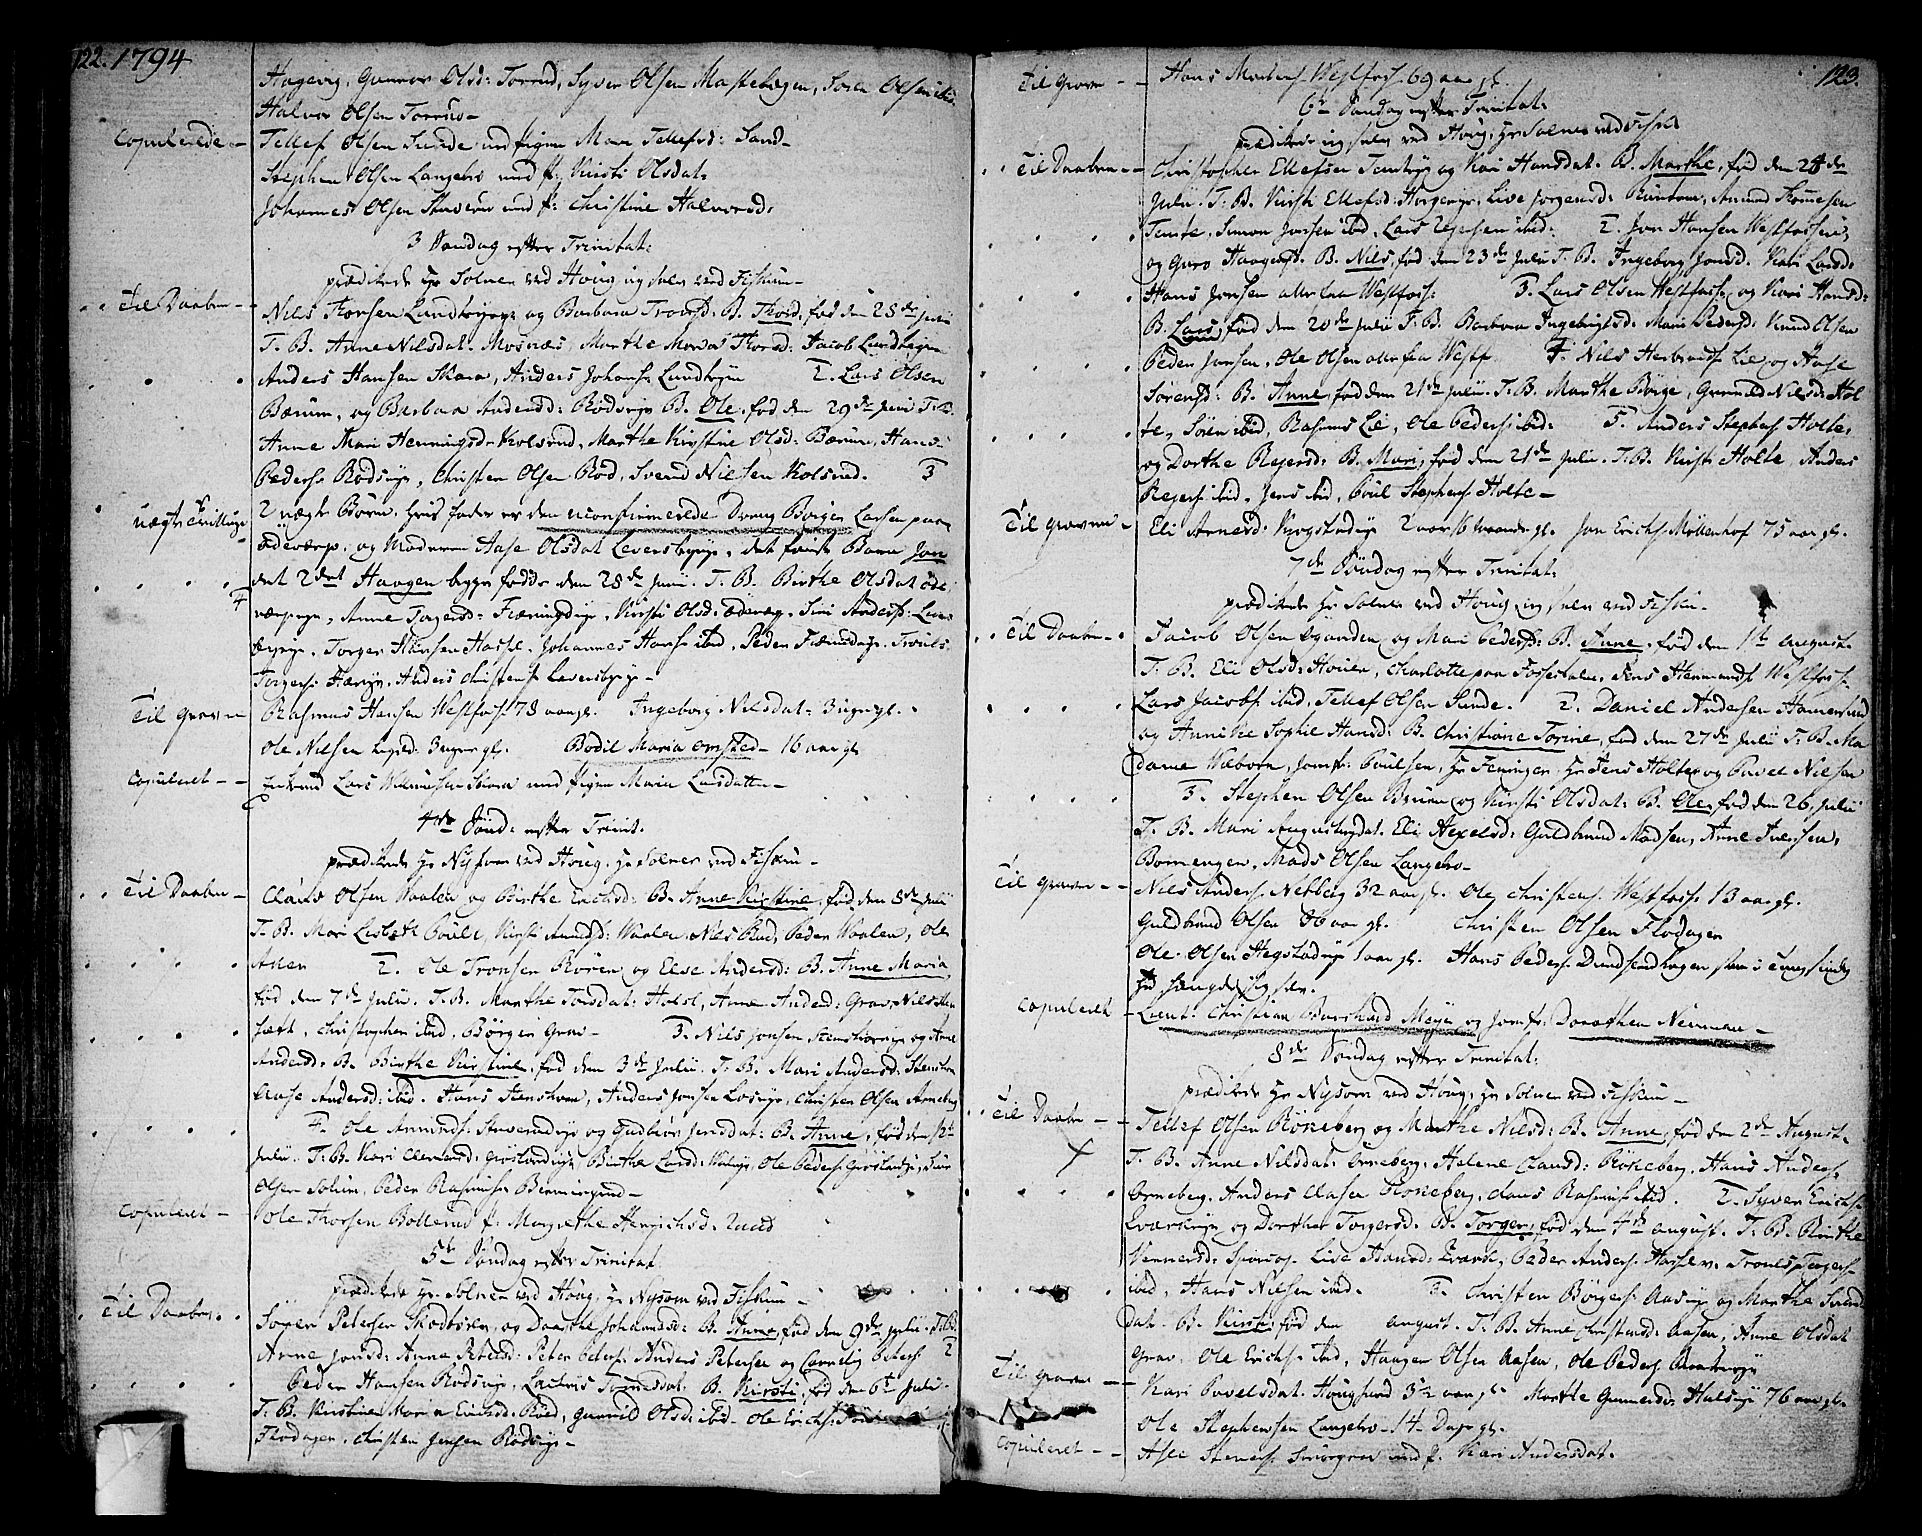 122. 1794
Hagevig, Gunnor Olsd: Torrud, Syver Olsen Mastebogen, Soren Olsen ibid.
Halvor Olsen Torrud-
Copulerede - Tellef Olsen Sunde med pigen Mari Tellefsd: Sand-
Stephen Olsen Langebro med p: Kirsti Olsdat:
Johannes Olsen Stuverud med p: Christine Halvorsd:
3 Søndag efter Trinitat:
prædikede Hr Solner ved Houg ingen ved Fiskum-
Til Daaben - Nils Torsen Lundbyeye og Barbara Tronsd: B. Thord, fød den 28de Juni
T. B. Anne Nilsdat. Mosnæs, Marthe Maria Thorsd: Jacob Lundbyeie
Anders Hansen Skara, Anders Johans: Lundbyeie 2. Lars Olsen
Bærum, og Barbara Andersd: Rødseie B. Ole, fød den 29de Juni T. B.
Anne Mari Henningsd: Kolsrud, Marthe Kirstine Olsd: Bærum, Hans
Peders: Rødseie, Christen Olsen Rød, Svend Nielsen Kolsrud. 3
uægte Tvillinge 2 uægte Børn, hvis fader er den uconfirmerede Dreng Børger Larsen paa
Ødeverp, og Moderen Aase Olsdat Leversbyeie, det første Barn Jon
det 2det Haagen begge fødde den 28de Juni. T. B. Birthe Olsdat Øde
4 verpeie, Anne Torgersd: Fløringseie, Kirsti Olsd: Ødeverp, Siri Anders: Levers
byeie, Torger Hansen Hassel, Johannes Hans: ibid, Peder Færingseie, Trouls
Torgers: Færeie, Anders Christens: Leversbyeie-
Til Graven Rasmus Hansen Westfos: 78 aar gl. Ingeborg Nilsdat: 3 uger gl.
Ole Nilsen 3 uger gl. Bodil Maria Omsted - 16 aar gl
Copuleret - Enkmd Lars Skara med pigen Maria Larsdatter-
4de Sønd: efter Trinit.
prædikede Hr Nysom ved Houg, Hr Solner ved Fiskum-
Til Daaben - Claus Olsen Waalen og Birthe Erichsd: B. Anne Kirstine, fød den 8de Julii
T. B. Mari Lisbeth Poule, Kirsti Amundsd: Waalen, Nils Rud, Peder Waalen, Ole
Aslen 2. Ole Tronsen Røren og Else Andersd: B. Anne Maria
fød den 7de Julii. T. B. Marthe Torsdat: Hobsl, Anne Andersd: Grav, Nils Sten
sæth, Christopher ibid, Børger Grav- 3. Nils Jonsen Stenshorneie og Anne
Andersd: B. Birthe Kirstine, fød den 3de Julii. T. B. Mari Andersd: Stenshorn
Aase Andersd: ibid. Hans Stenshorn, Anders Jonsen Loseie, Christen Olsen Arneberg
4. Ole Amunds: Stuverudeie og Gudbiør Jensdat: B. Anne, fød den 1te
Julii. T. B. Kari Clemmetsd: Grøslandeie, Birthe Larsd: Waleie, Ole Peders: Grøslandeie, Lars
Olsen Solum, Peder Rasmus: Bermingrud-
Copuleret - Ole Thorsen Bollerud p: Margrethe Henrichsd: Lund
5te Søndag efter Trinitat.
prædikede Hr. Solner ved Houg, Hr Nysom ved Fiskum-
Til Daaben. Sören Petersen Skodtören, og Dorothe Johannesd: B. Anne, fød den 9de Julii. T. B.
Anne Jonsd: Anne Petersd: Peter Peters: Anders Petersen og Cornelig Peters: 2
Peder Hansen Rødseie, Laurtis Tormesdat: B. Kirsti, fød den 6te Julii.
T. B. Kirstine Maria Ericsd: Röed, Gunnild Olsd: ibid - Ole Erichs:
Flodagen, Christen Jensen Rødseie-
123.
Til Graven - - Hans Mortens: Westfos: 69 aar gl.
6te Søndag efter Trinitat:
prædikede ingen ved Houg, Hr Solner ved Fiskum
Til Daaben - - Christopher Ellefsen Temteie og Kari Hansdat: B. Marthe, fød den 24de
Julii. T. B. Kirsti Ellefsd: Horgeneie, Live Jorgensd: Amund Tomesen
Temte, Simon Jonsen ibid, Lars Rejersen ibid: 2. Jon Hansen Westfosseie
og Guro Haagens: B. Nils, fød den 23de Julii T. B. Ingeborg Jonsd. Kari Larsd:
Hans Jonsen alle fra Westfos: 3. Lars Olsen Westfos: og Kari Hansd:
B. Lars, fød den 20de Julii T. B. Barbara Ingebrigtsd: Mari Pedersd: Knud Olsen
Peder Jonsen, Ole Olsen alle fra Westf 4. Nils Herbrands: Lie og Aase
Sørensd: B. Anne, fød den 21de Julii. T. B. Marthe Børge, Gunnild Nilsd: Hol
te, Sören ibid, Rasmus Lie, Ole Peders: ibid: 5. Anders Stephens: Holte,
og Dorthe Rejersd: B. Mari, fød den 21de Julii. T. B. Kirsti Holte, Anders
Rejers: ibid, Jens ibid, Poul Stephens: Holte-
Til Graven - Eli Arnesd: Krogstadeie 2 aar 6 maaneder gl. Jon Erichs: Møllenhof 75 aar gl.
7de Søndag efter Trinitat:
prædikede Hr Solner ved Houg, ingen ved Fiskum-
Til Daaben - Jacob Olsen Eganden og Mari Peders: B. Anne, fød den 1te August.
T. B. Eli Olsd: Houen, Charlotte paa Fossesholm, Jens Hermands: Westfos:
Lars Jacobs: ibid, Tellef Olsen Sunde. 2. Daniel Andersen Hamersund
og Annike Sophie Hansd: B. Christiane Torine, fød den 27de Julii T. B. Ma
dame Weborn, Jomfr: Poulsen, Hr Feninger, Hr Jens Holter og Pavel Nilsen
3. Stephen Olsen Bruun og Kirsti Olsdat: B. Ole, fød den 26. Julii
T. B. Mari Augustinsdat. Eli Axelsd: Guldbrand Madsen, Arne Iversen,
Bornengen, Mads Olsen Langebro-
Til Graven - - Nils Anders: Nebberg 32 aar gl. Ole Christens: Westfos: 13 aar gl.
Guldbrand Olsen 86 aar gl. Christen Olsen Flodagen
Ole Olsen Hegstadeie 1 aar gl. Hans Peders: Dundsendhagen som i Tungsindig
hed hængde sig selv.
Copuleret - Lieut: Christian Burchard Meyer og Jomfr: Dorothea Neuman-
8de Søndag efter Trinitat:
prædikede Hr Nysom ved Houg, Hr Solner ved Fiskum-
Til Daaben - - Tellef Olsen Rökeberg og Marthe Nilsd: B. Anne, fød den 2de August.
T. B. Anne Nilsdat: Orneberg, Helene Clausd: Rökeberg, Hans Anders:
Orneberg, Anders Clasen Rökeberg, Claus Rasmus: ibid. 2. Syver Erichs:
Tværskeie og Dorthea Torgersd. B. Torger, fød den 4de August. T. B. Birthe
Vennersd: Sporeos, Live Hansd: Tværsk, Peder Anders: Hassel v. Tronls Torgers:
ibid, Hans Nilsen ibid. 3. Christen Börgers: Aaseie og Marthe Svend
dat. B. Kirsti, fød den August. T. B. Anne Christensd: Aasen, Anne Olsdat
Grav, Ole Erichs: ibid, Haagen Olsen Aasen, Ole Peders:
Til Graven - Kari Pavelsdat: Hougsund 3 1/2 aar gl Marthe Gunnersd: Halseie 76 aar gl.
Ole Stephensen Langebro - 14 Dage gl.
Copuleret - - Aslee Steners: Smörgrav med p. Kari Andersdat.